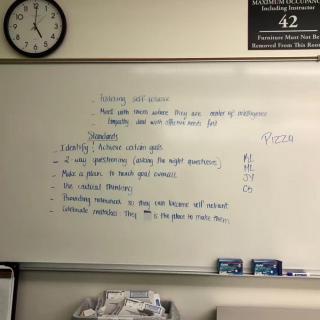 MAXIMUM OCCUPANCY
Including Instructor
42
Furniture Must Not Be
Removed From This Room
- Fostering self-reliance
- Meet with them where they are
- Empathy deal with affective needs first
Standards
Pizza
- Identify & Achieve certain goals
- 2-way questioning (asking the right questions)
ML
ML
- Make a plan to reach goal overall
JY
- Use critical thinking
CS
- Providing resources so they can become self reliant
- Celebrate mistakes: The is the place to make them